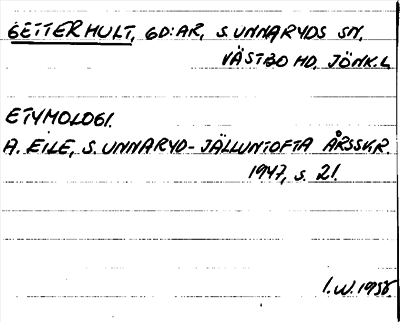 GETTERHULT, GD:AR, S. UNNARYDS SN.
VÄSTBO HD. JÖNK.L
ETYMOLOGI.
A. EILE, S. UNNARYD-JÄLLUNTOFTA ÅRSSKR.
1947, s. 21.
I.W. 1956